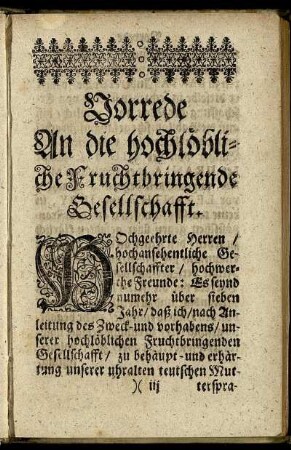 Vorrede
An die hochlöbli-
che Fruchtbringende
Gesellschafft.
HOchgeehrte Herren /
hochansehentliche Ge-
sellschaffter / hochwer-
che Freunde: Es seynd
nunmehr über sieben
Jahr / daß ich / nach An-
leitung des Zweck- und vorhabens / un-
serer hochlöblichen Fruchtbringenden
Gesellschafft / zu behäupt- und erhär-
tung unserer uhralten teutschen Mut-
)( iij terspra-